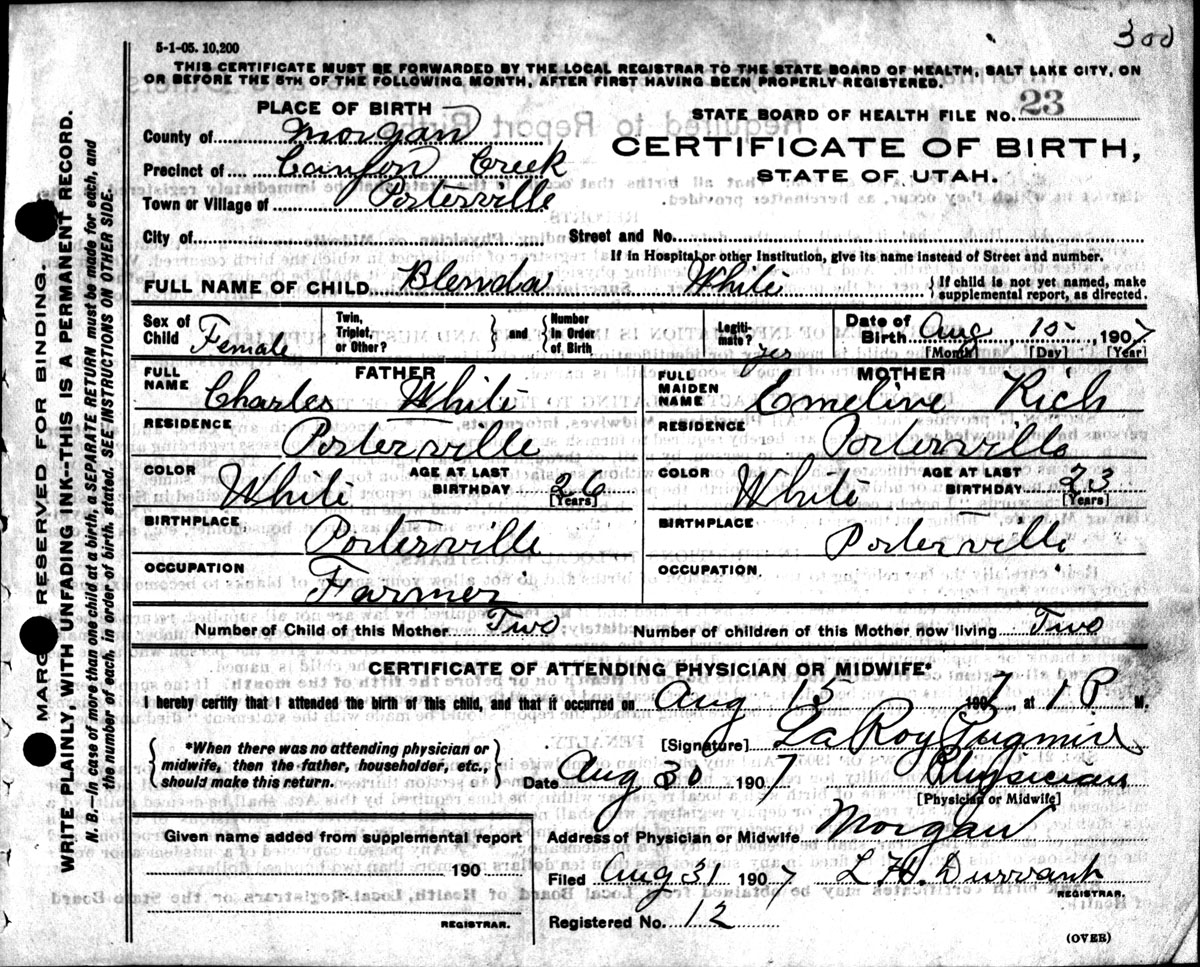 300
5-1-05. 10,200
THIS CERTIFICATE MUST BE FORWARDED BY THE LOCAL REGISTRAR TO THE STATE BOARD OF HEALTH, SALT LAKE CITY, ON
OR BEFORE THE 5TH OF THE FOLLOWING MONTH, AFTER FIRST HAVING BEEN PROPERLY REGISTERED.
PLACE OF BIRTH
STATE BOARD OF HEALTH FILE NO. 23
County of Morgan
CERTIFICATE OF BIRTH,
Precinct of Canyon Creek
STATE OF UTAH.
Town or Village of Porterville
City of Street and No.
If in Hospital or other Institution, give its name instead of Street and number.
FULL NAME OF CHILD Blenda White } If child is not yet named, make supplemental report, as directed.
Sex of Child Female Twin, Triplet, or Other? } and { Number In Order of Birth Legiti-mate? yes Date of Birth Aug 15, 1907
[Month] [Day] [Year]
FATHER MOTHER
FULL NAME Charles White FULL MAIDEN NAME Emeline Rich
RESIDENCE Porterville RESIDENCE Porterville
COLOR White AGE AT LAST BIRTHDAY 26 [Years] COLOR White AGE AT LAST BIRTHDAY 23 [Years]
BIRTHPLACE Porterville BIRTHPLACE Porterville
OCCUPATION Farmer OCCUPATION
Number of Child of this Mother Two Number of children of this Mother now living Two
CERTIFICATE OF ATTENDING PHYSICIAN OR MIDWIFE*
I hereby certify that I attended the birth of this child, and that it occurred on Aug 15 1907, at 1 P M.
{ *When there was no attending physician or midwife, then the father, householder, etc., should make this return. }
[Signature] LaRoy Pugmire
Date Aug 30 1907 Physician
[Physician or Midwife]
Given name added from supplemental report
190
REGISTRAR.
Address of Physician or Midwife Morgan
Filed Aug 31 1907 L H Durrant
REGISTRAR.
Registered No. 12
(OVER)
MARGIN RESERVED FOR BINDING.
WRITE PLAINLY, WITH UNFADING INK--THIS IS A PERMANENT RECORD.
N. B.--In case of more than one child at a birth, a SEPARATE RETURN must be made for each, and
the number of each, in order of birth, stated. SEE INSTRUCTIONS ON OTHER SIDE.